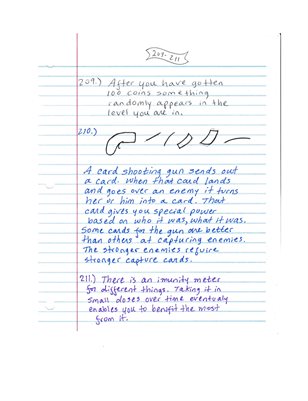 209-211
209.) After you have gotten
100 coins something
randomly appears in the
level you are in.
210.)
A card shooting gun sends out
a card. When that card lands
and goes over an enemy it turns
her or him into a card. That
card gives you special power
based on who it was, what it was.
Some cards for the gun are better
than others at capturing enemies.
The stronger enemies require
stronger capture cards.
211.) There is an imunity meter
for different things. Taking it in
small doses over time eventualy
enables you to benifit the most
from it.